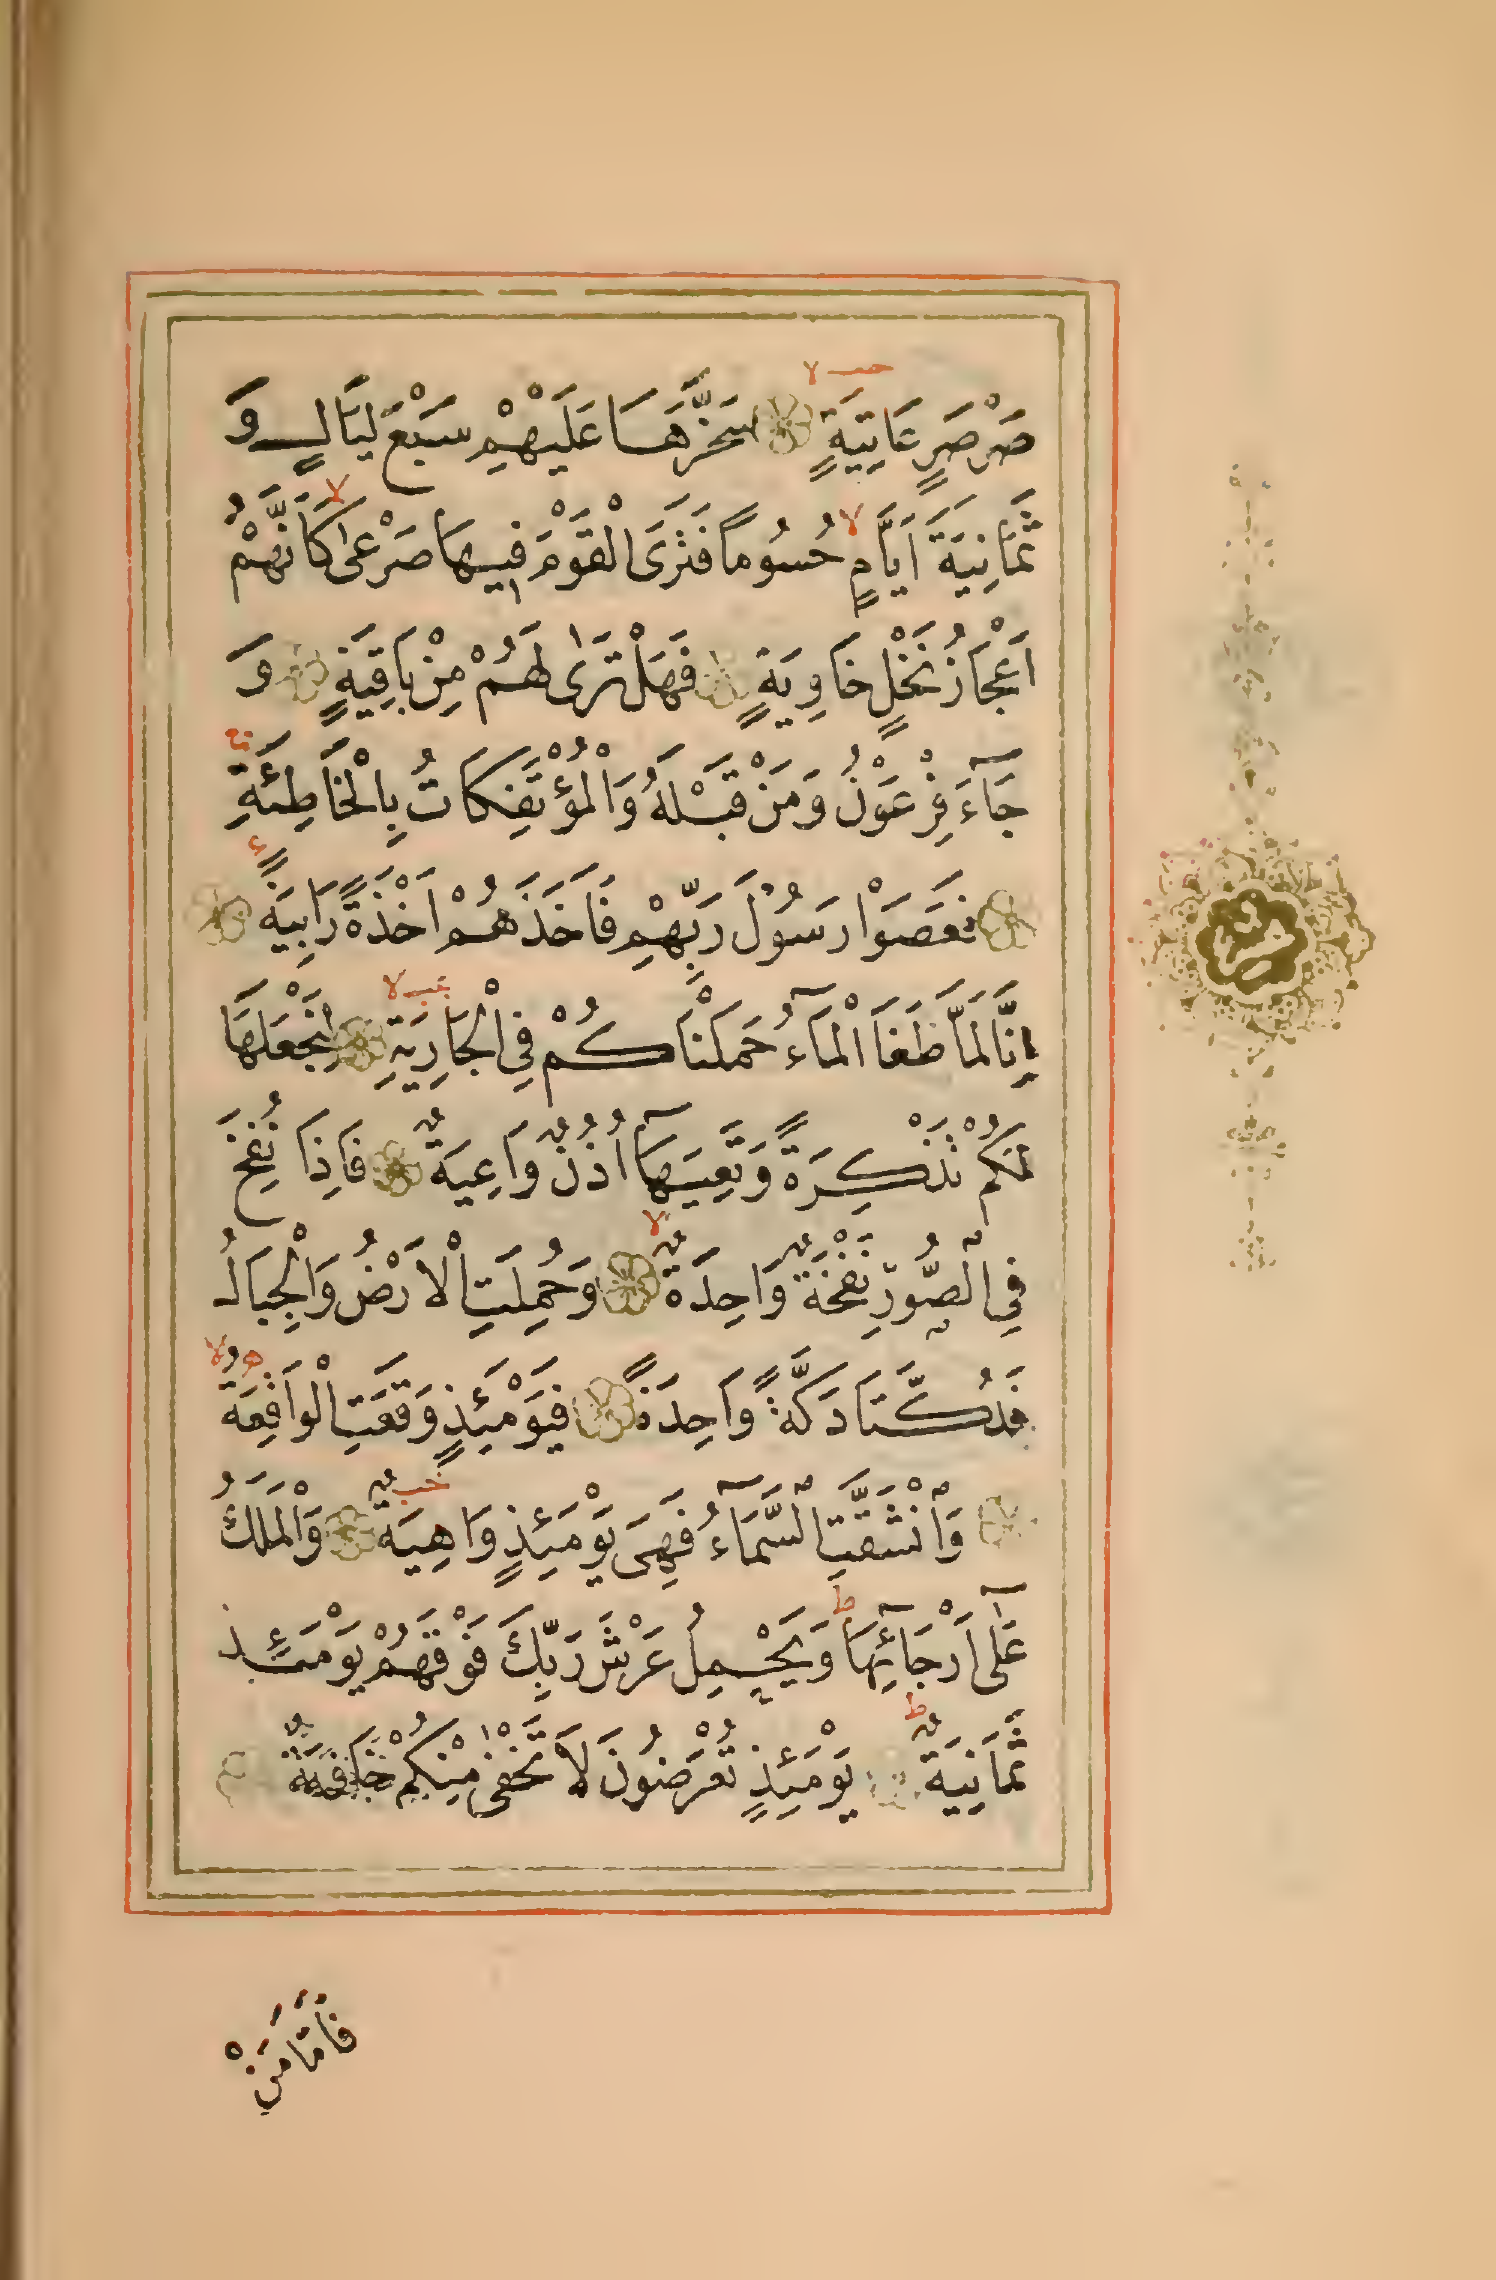 صَرْصَرٍ عَاتِيَةٍ سَخَّرَهَا عَلَيْهِمْ سَبْعَ لَيَالٍ وَ
ثَمَانِيَةَ اَيَّامٍ حُسُومًا فَتَرَى الْقَوْمَ فِيهَا صَرْعٰى كَاَنَّهُمْ
اَعْجَازُ نَخْلٍ خَاوِيَةٍ فَهَلْ تَرٰى لَهُمْ مِنْ بَاقِيَةٍ وَ
جَآءَ فِرْعَوْنُ وَمَنْ قَبْلَهُ وَالْمُؤْتَفِكَاتُ بِالْخَاطِئَةِ
فَعَصَوْا رَسُولَ رَبِّهِمْ فَاَخَذَهُمْ اَخْذَةً رَابِيَةً
اِنَّا لَمَّا طَغَا الْمَآءُ حَمَلْنَاكُمْ فِي الْجَارِيَةِ لِنَجْعَلَهَا
لَكُمْ تَذْكِرَةً وَتَعِيَهَآ اُذُنٌ وَاعِيَةٌ فَاِذَا نُفِخَ
فِي الصُّورِ نَفْخَةٌ وَاحِدَةٌ وَحُمِلَتِ الْاَرْضُ وَالْجِبَالُ
فَدُكَّتَا دَكَّةً وَاحِدَةً فَيَوْمَئِذٍ وَقَعَتِ الْوَاقِعَةُ
وَانْشَقَّتِ السَّمَآءُ فَهِىَ يَوْمَئِذٍ وَاهِيَةٌ وَالْمَلَكُ
عَلٰٓى اَرْجَآئِهَا وَيَحْمِلُ عَرْشَ رَبِّكَ فَوْقَهُمْ يَوْمَئِذٍ
ثَمَانِيَةٌ يَوْمَئِذٍ تُعْرَضُونَ لَا تَخْفٰى مِنْكُمْ خَافِيَةٌ
فَاَمَّا مَنْ